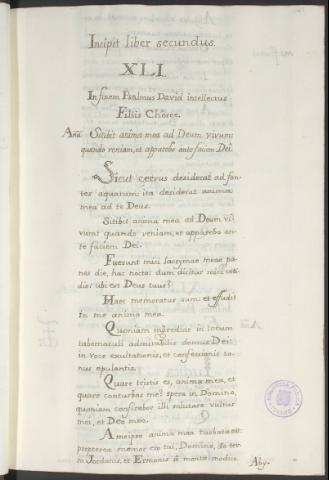 Incipit liber secundus.
XLI
In finem Psalmus David intellectus
Filiis Chore.
Aña. Sitibit anima mea ad Deum vivum:
quando veniam, et apparebo ante faciem Dei.
Sicut cervus desiderat ad fon-
tes aquarum: ita desiderat anima
mea ad te Deus.
Sitibit anima mea ad Deum vi-
vum: quando veniam, et apparebo an-
te faciem Dei.
Fuerunt mihi lacrymæ meæ pa-
nes die, hac nocte: dum dicitur mihi coti-
die: ubi est Deus tuus?
Hæc memoratus sum: et effudi
in me anima mea.
Quoniam ingrediar in locum
tabernaculi admirabilis domus Dei:
in voce exultationis, et confessionis so-
nus epulantis.
Quare tristis es, anima mea, et
quare conturbas me? spera in Domino,
quoniam confitebor illi salutare vultus
mei, et Deo meo.
A meipso anima mea turbata est:
propterea memor ero tui, Domine, de ter-
ra Jordanis, et Ermonis á monte modico.
Aby-